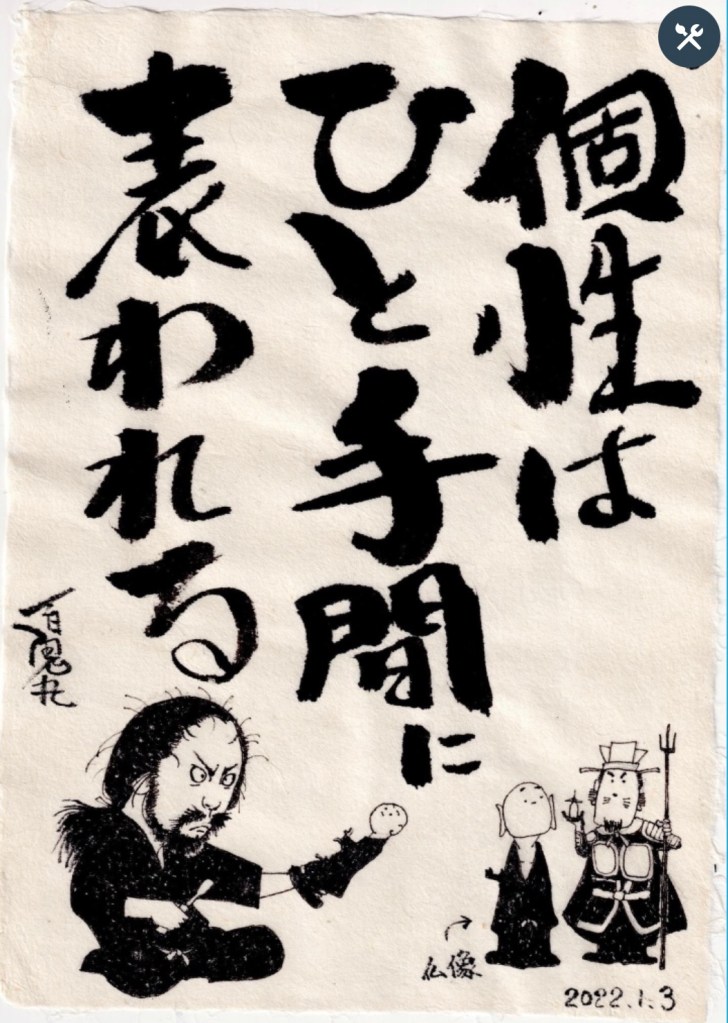 個性は
ひと手間に
表われる
百鬼丸
仏像
2022.1.3